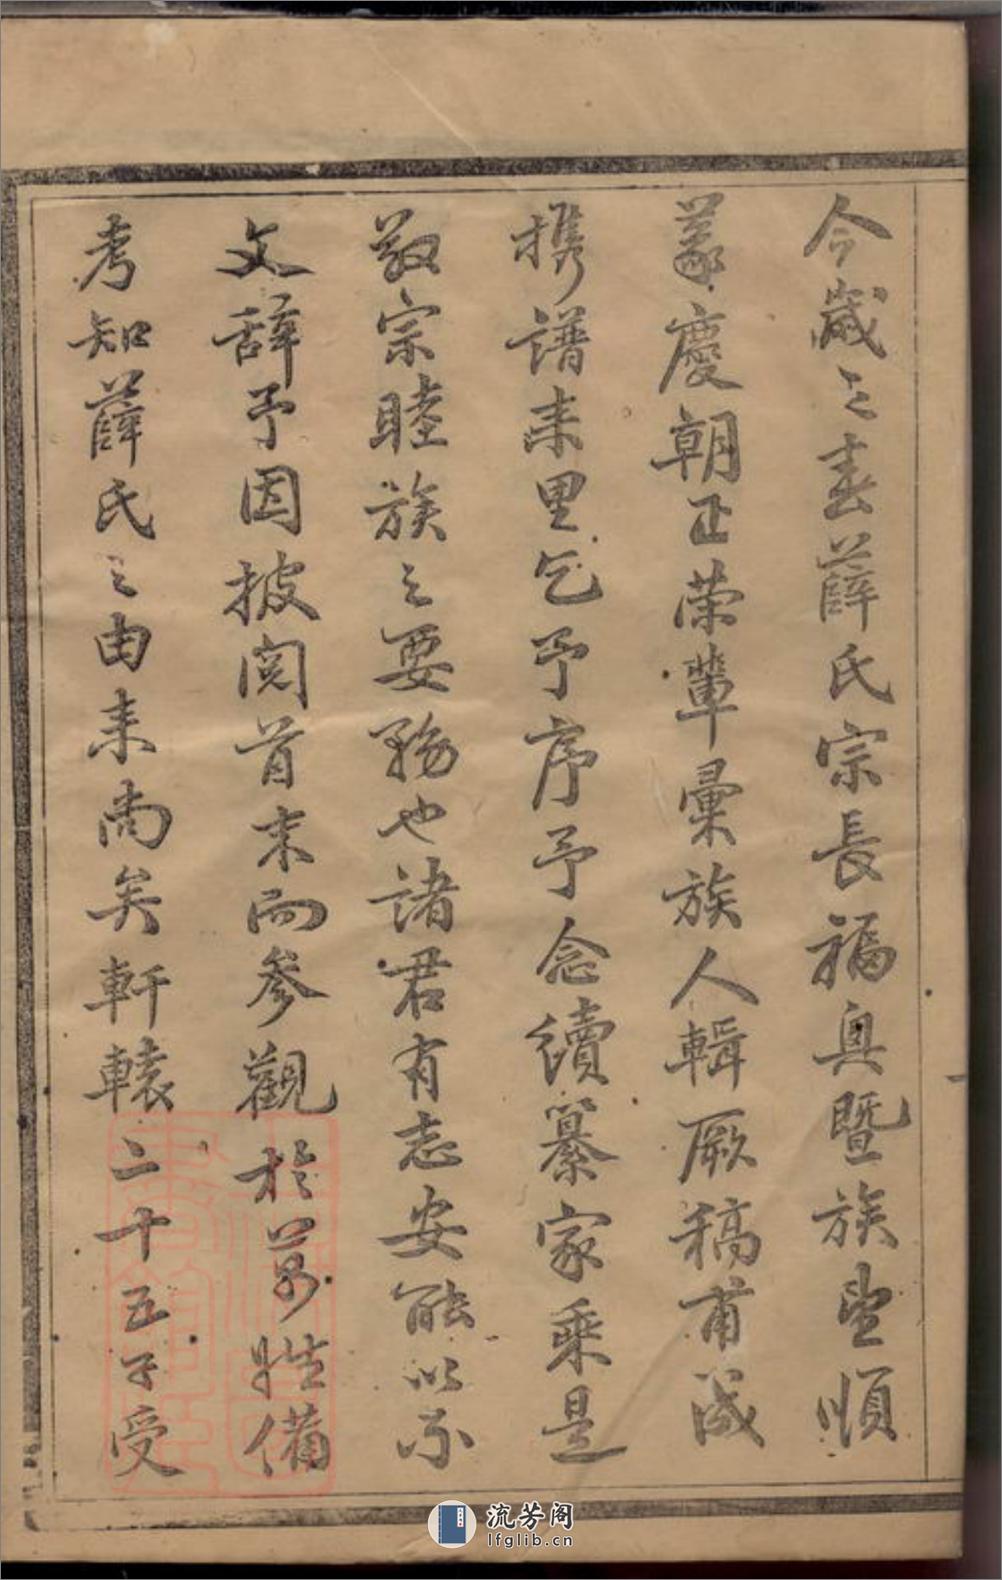 今歲之春薛氏宗長福與暨族望順
義慶朝正荣輩彙族人輯厥稿甫成
携譜来里乞予序予念續纂家乘是
敬宗睦族之要務也諸君有志安能以不
文辞予因披閲首末而參觀於萬姓備
考知薛氏之由来尚矣軒轅二十五子受
流芳阁
lfglib.cn